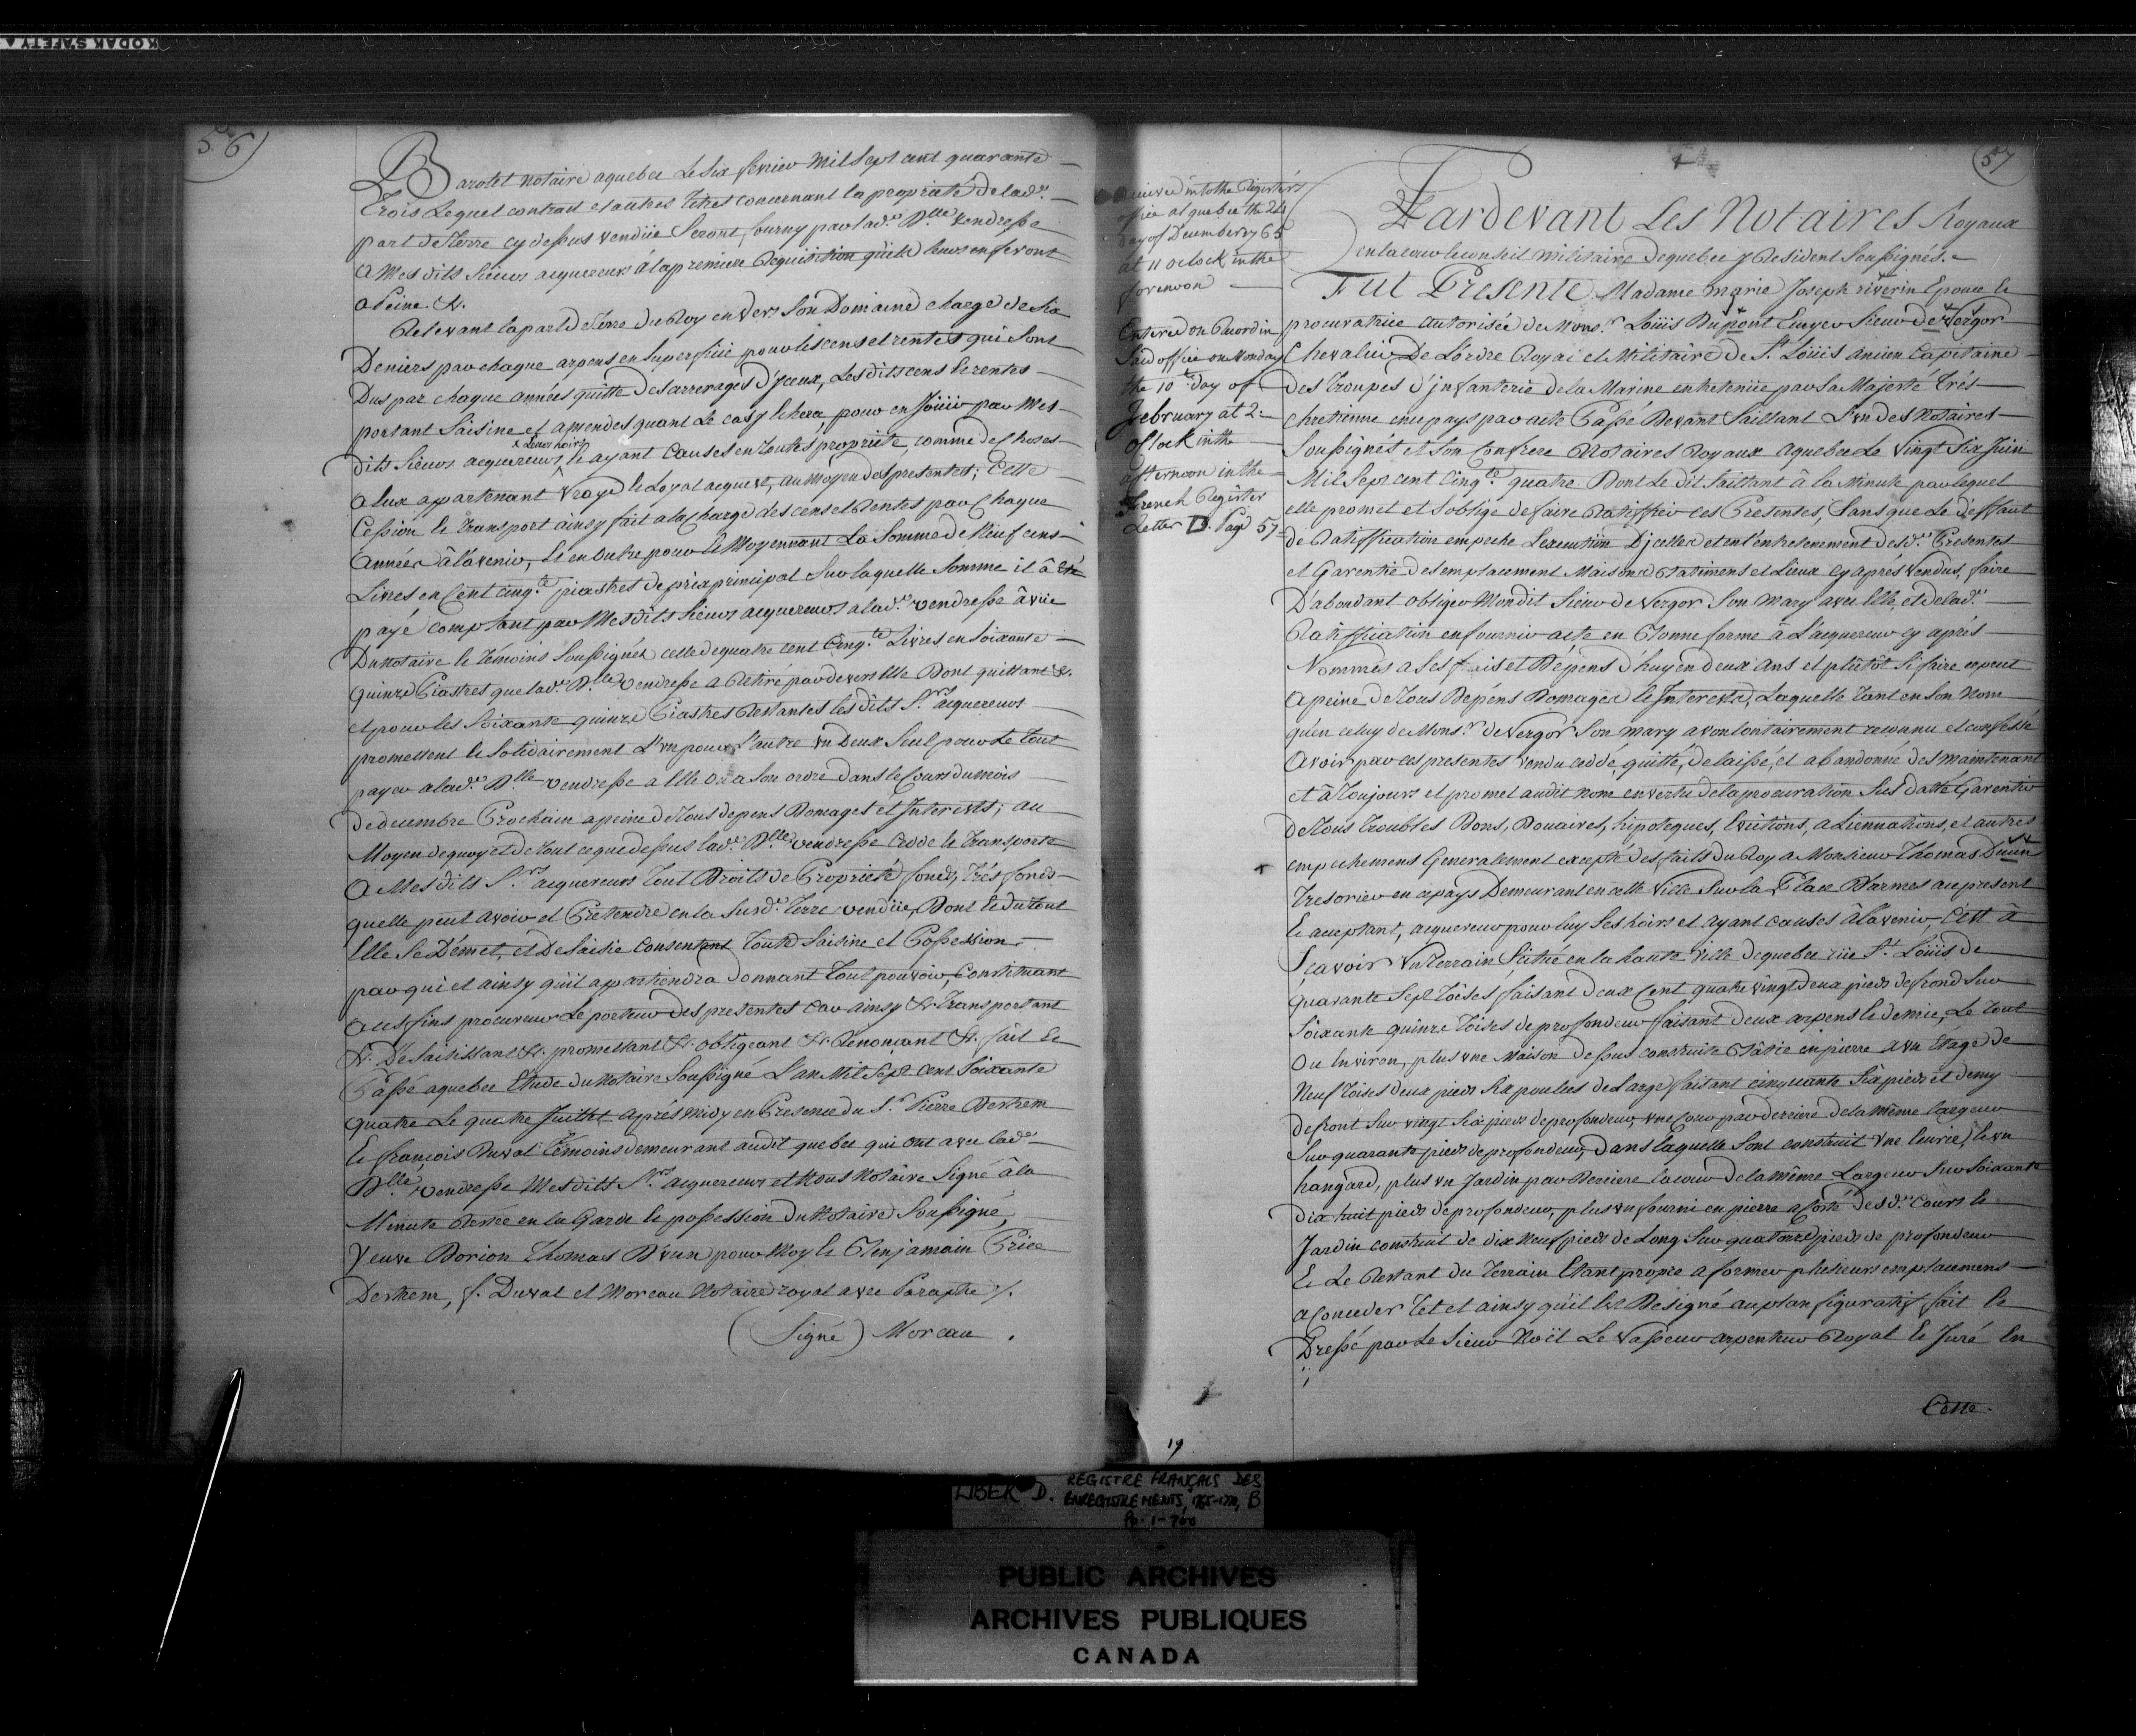 KODAK SAFETY
56
Barolet notaire aquebec Le Six fevrier Mil Sept cent quarante
Trois Lequel contrat et autres titres concernant la propriété de lade.
part de Terre cy dessus vendüe Seront fourny par lade. Dlle. venderesse
a Mes dits Sieurs acquereurs à la premiere Requisition quils leurs en feront
a Peine &c.
Relevant la part de Terre du Roy envers Son Domaine chargé de Six
Deniers par chaque arpens en Superficie pour les cens et rentes qui Sont
Dus par chaque années quitte des arrerages d'jceux, Lesdits cens et rentes
portant Saisine et amendes quant Le cas y Echera pour en Joüir par Mes
dits Sieurs acquereurs, x Leurs hoirs Et ayant Causes en Toutes propriété, comme de choses
a Eux appartenant Vraye et Loyal acquest, au Moyen des presentes; Cette
Cession et transport ainsy fait a la charge des cens et Rentes par Chaque
Années à l'avenir, Et en Outre pour et Moyennant La Somme de Neuf cens
Livres en Cent cinqte. piastres de prix principal Sur laquelle Somme il a été
payé comptant par Mesdits Sieurs acquereurs a lade. venderesse à vüe
Du Notaire et Témoins Soussignés celle de quatre cent Cinqte. Livres en Soixante
quinze Piastres que lade. Dlle. Venderesse a Retiré par devers Elle Dont quittant &c.
et pour les Soixante quinze Piastres Restantes lesdits Srs. acquereurs
promettent et Solidairement L'un pour L'autre un Deux Seul pour Le tout
payer a lade. Dlle. venderesse a Elle Ou a Son ordre dans le Cours du mois
de decembre Prochain a peine de Tous depens Domages et Interests; au
Moyen de quoy et de tout ce que dessus lade. Dlle. venderesse Cedde et transporte
a Mesdits Srs. acquereurs Tout Droits de Propriété fonds, Trés fonds
quelle peut avoir et Pretendre en la Susde. Terre vendüe, Dont Et du tout
Elle Se Démet, et Desaisie Consentant Toute Saisine et Possession
par qui et ainsy qu'il appartiendra Donnant tout pouvoir, Constituant
a ces fins procureur Le porteur des presentes Car ainsy &c. transportant
&c. Désaisissant &c. promettant &c. obligeant &c. Renonçant &c. fait Et
Passé aquebec Etude du Notaire Soussigné L'an Mil Sept cent Soixante
quatre Le quatre Juillet aprés Midy en Presence du Sr. Pierre Dextrem
Et françois Duval Témoins demeurant audit quebec qui Ont avec lade.
Dlle. venderesse Mesdits Srs. acquereurs et Nous Notaire Signé à la
Minute Restée en la Garde et possession du Notaire Soussigné,
Veuve Dorion Thomas Dunn pour Moy et Benjamain Price
Dextrem, f. Duval et Moreau Notaire royal avec Paraphe /.
(Signé) Moreau.
57
Received into the Register's
office at quebec the 24
day of December 1765
at 11 oclock in the
forenoon
Entered on Record in
Said office on Monday
the 10th day of
February at 2
oclock in the
afternoon in the
French Register
Letter D. Page 57
Pardevant Les Notaires Royaux
en la cour le conseil Militaire de quebec y Resident Soussignés.
Fut Presente Madame Marie Joseph riverin Epouse Et
procuratrice autorisée de Monsr. Loüis Dupont Ecuyer Sieur de Vergor
Chevalier De L'ordre Royal et Militaire de St. Loüis ancien Capitaine
des Troupes d'jnfanterie de la Marine entretenüe par Sa Majesté Trés
chretienne en ce pays par acte Passé Devant Saillant L'un des Notaires
Soussignés et Son Confrere Notaires Royaux aquebec Le Vingt Six Juin
Mil Sept cent Cinqte. quatre Dont Le dit Saillant à la Minute par lequel
elle promet et S'oblige de faire Ratiffier ces Presentes, Sans que Le deffaut
de Ratiffication empeche L'execution D'jcelles et en l'entretenement desde. Presentes
et Garentie des emplacement Maison Batimens et Lieux cy apres vendus, faire
D'abondant obliger Mondit Sieur de Vergor Son Mary avec Elle, et de lade.
Ratiffication en fournir acte en Bonne forme à L'acquereur cy aprés
Nommés a Ses frais et Dépens d'huy en deux ans et plûtôt Si faire ce peut
a peine de Tous Depens Domages et Interests, Laquelle Tant en Son Nom
qu'en celuy de Monsr. de Vergor Son Mary a volontairement reconnu et confessé
avoir par ces presentes vendu ceddé, quitté, delaissé, et abandonné des maintenant
et à Toujours et promet audit Nom en vertu de la procuration Sus datté Garentir
de Tous Troubles Dons, Douaires, hipoteques, Evictions, alliennations, et autres
empechemens Generalement excepté des faits du Roy a Monsieur Thomas Dunn
Tresorier en ce pays Demeurant en cette Ville Sur la Place D'armes au present
Et acceptant, acquereur pour luy Ses hoirs et ayant causes à l'avenir, C'est à
Sçavoir Un Terrain Scitué en la haute Ville de quebec rüe St. Loüis de
quarante Sept Toises faisant deux Cent quatre vingt deux pieds de frond Sur
Soixante quinze Toises de profondeur faisant deux arpens et demie, Le tout
Ou Environ, plus une Maison dessus construite Bâtie en pierre a un Etage de
Neuf Toises deux pieds Six pouces de Large faisant cinquante Six pieds et demy
de front Sur vingt Six pieds de profondeur, une Cour par derriere de la Même largeur
Sur quarante pieds de profondeur, Dans laquelle Sont construit Une Ecurie, et un
hangard, plus un Jardin par Derriere la cour de la Même Largeur Sur Soixante
dix huit pieds de profondeur, plus un fourni en pierre a Coté desde. Cours et
Jardin construit de dix Neuf pieds de Long Sur quatorze pieds de profondeur
Et Le Restant du Terrain Etant propre a former plusieurs emplacemens
a Conceder Tel et ainsy qu'il Est Designé au plan figuratif fait et
Dressé par Le Sieur Noël Le Vasseur arpenteur Royal Et Juré En
Cette.
19
LIBER D. REGISTRE FRANÇAIS DES
ENREGISTREMENTS, 1765-1770, B
Pp. 1-700
PUBLIC ARCHIVES
ARCHIVES PUBLIQUES
CANADA